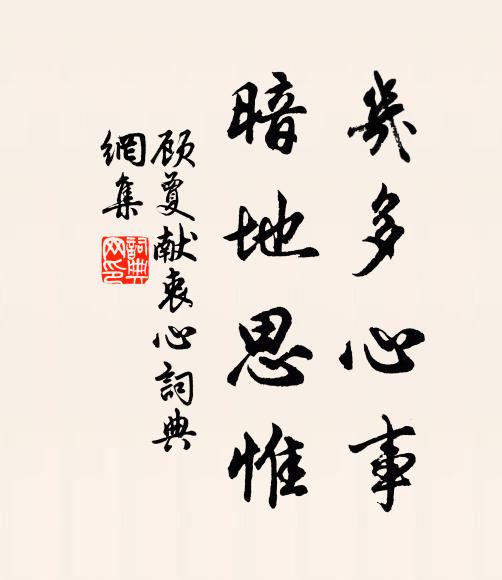 幾多心事
暗地思惟
顾夐献衷心詞典
網集
詞典
网印